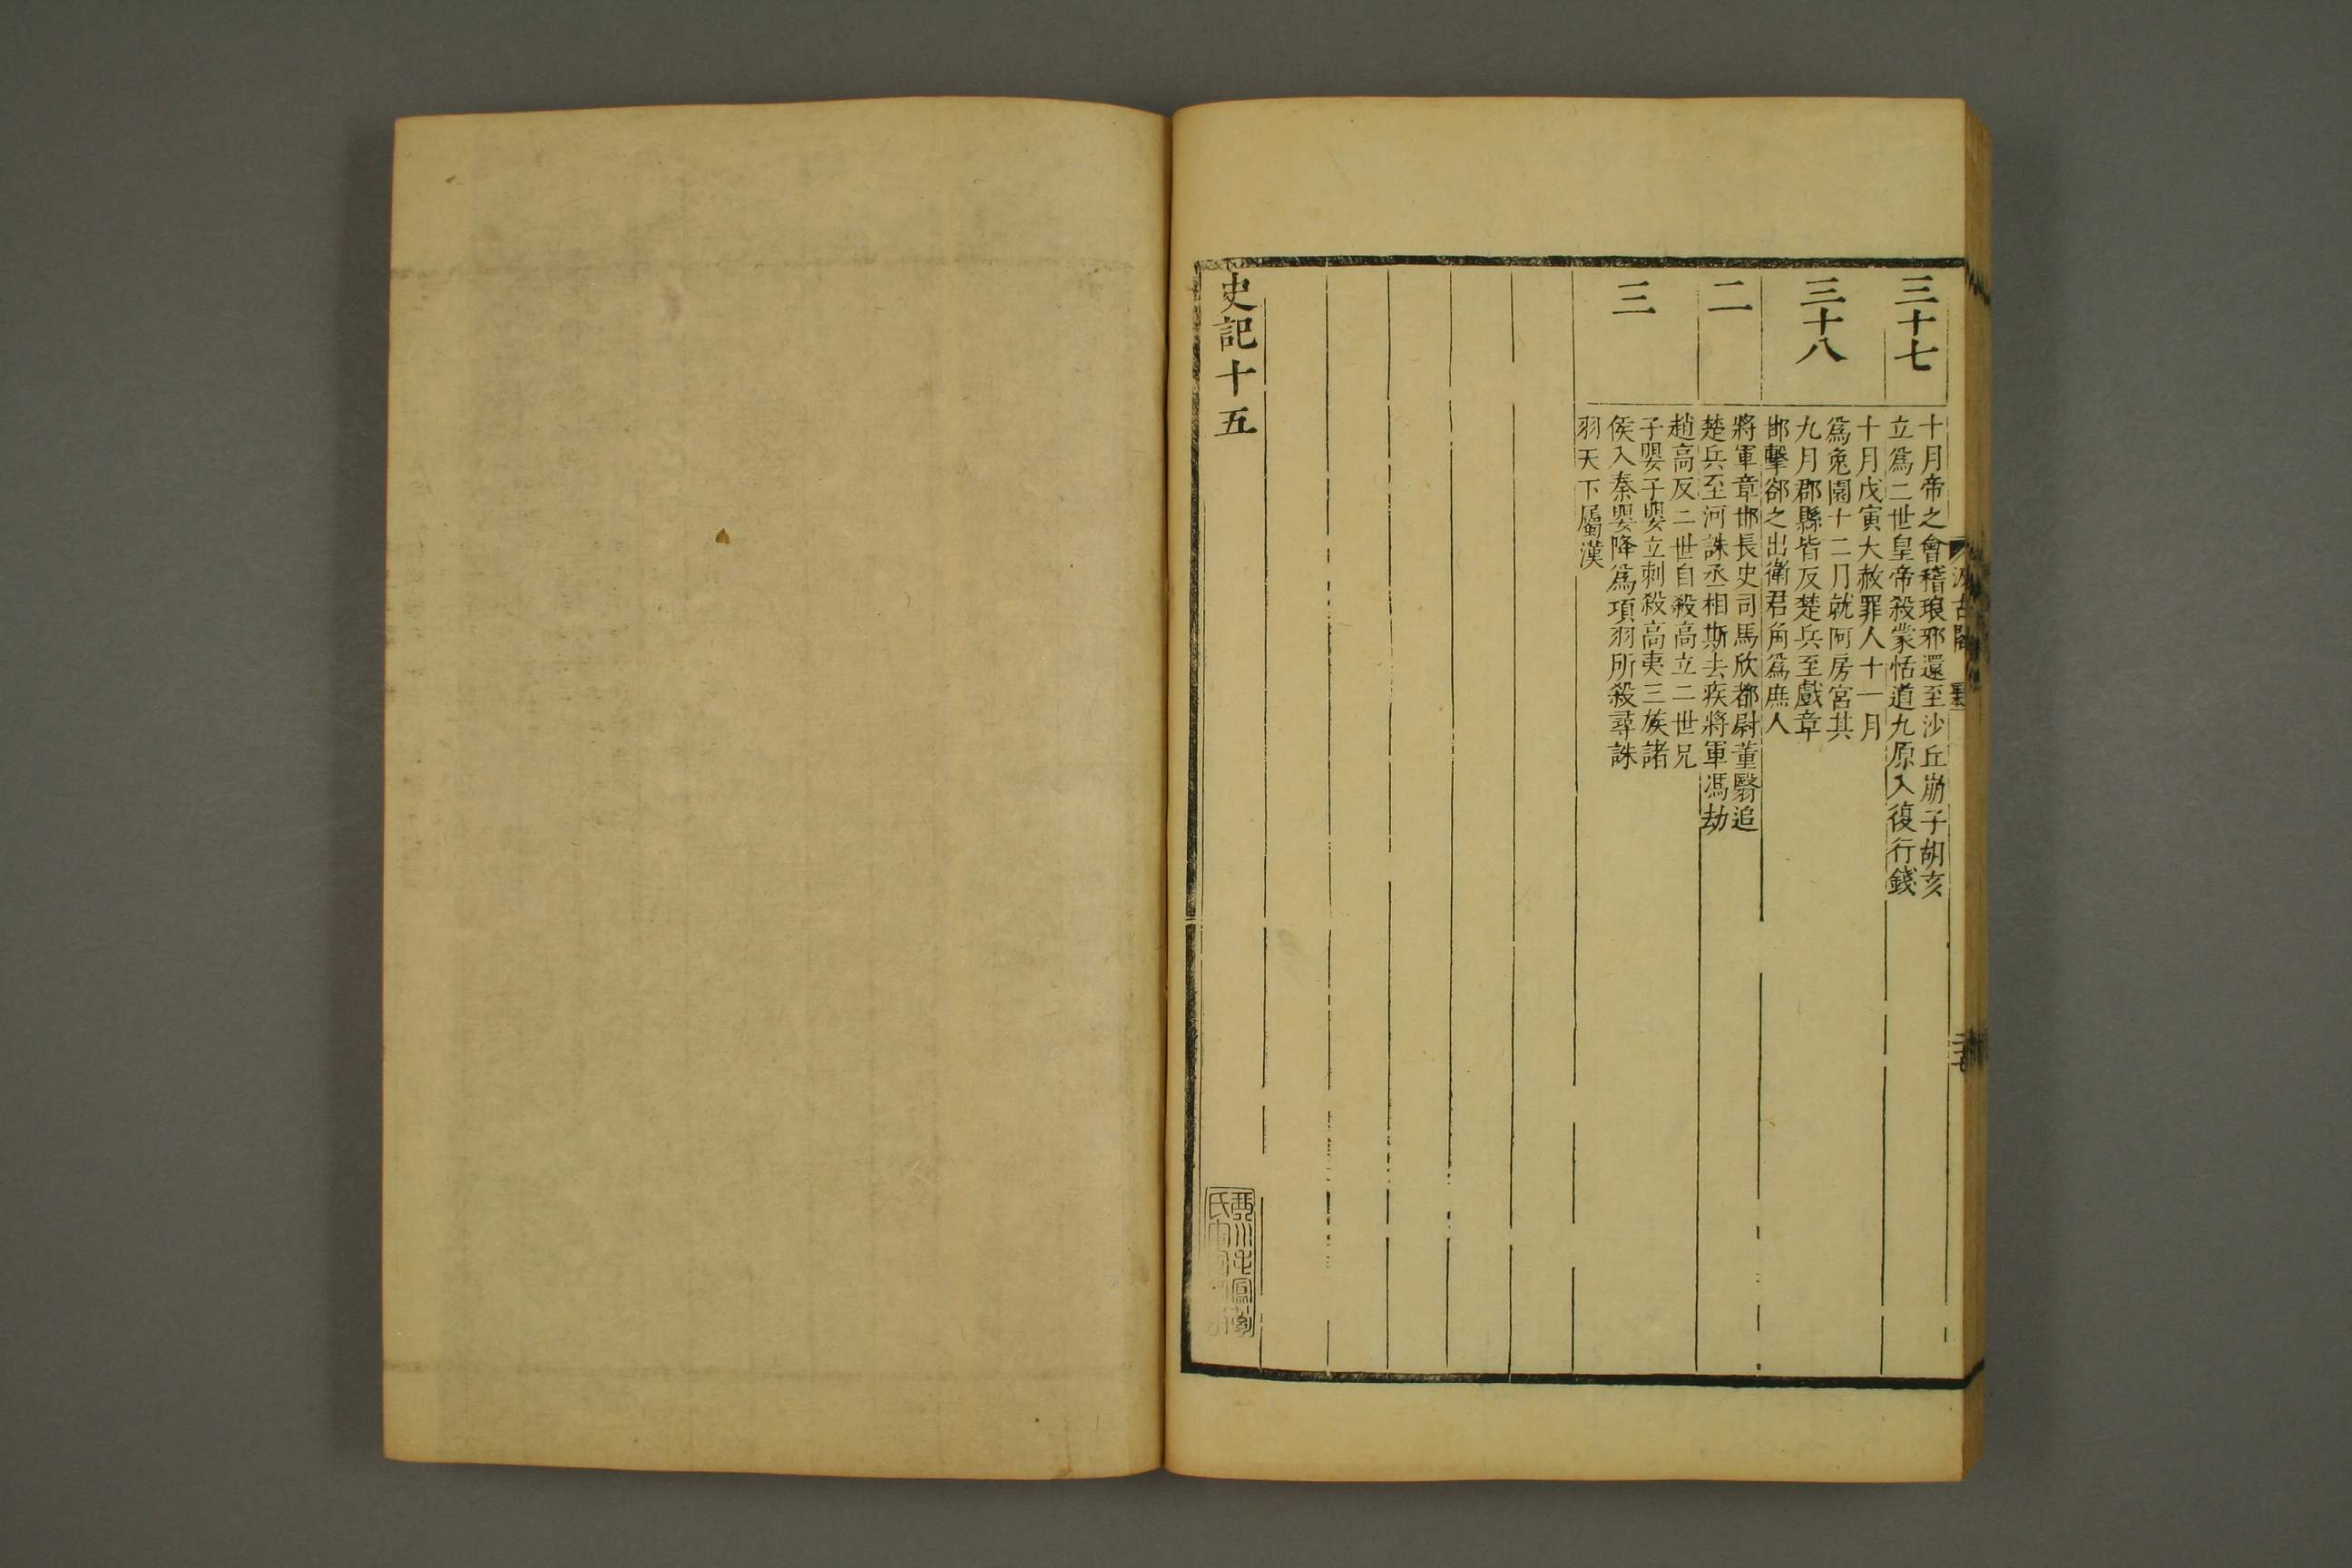 三十七
十月帝之會稽琅邪還至沙丘崩子胡亥
立爲二世皇帝殺蒙恬道九原入復行錢
三十八
十月戊寅大赦罪人十一月
爲兔園十二月就阿房宮其
九月郡縣皆反楚兵至戲章
邯擊郤之出衛君角爲庶人
二
將軍章邯長史司馬欣都尉董翳追
楚兵至河誅丞相斯去疾將軍馮劫
三
趙高反二世自殺高立二世兄
子嬰子嬰立刺殺高夷三族諸
侯入秦嬰降爲項羽所殺尋誅
羽天下屬漢
史記十五
汲古閣